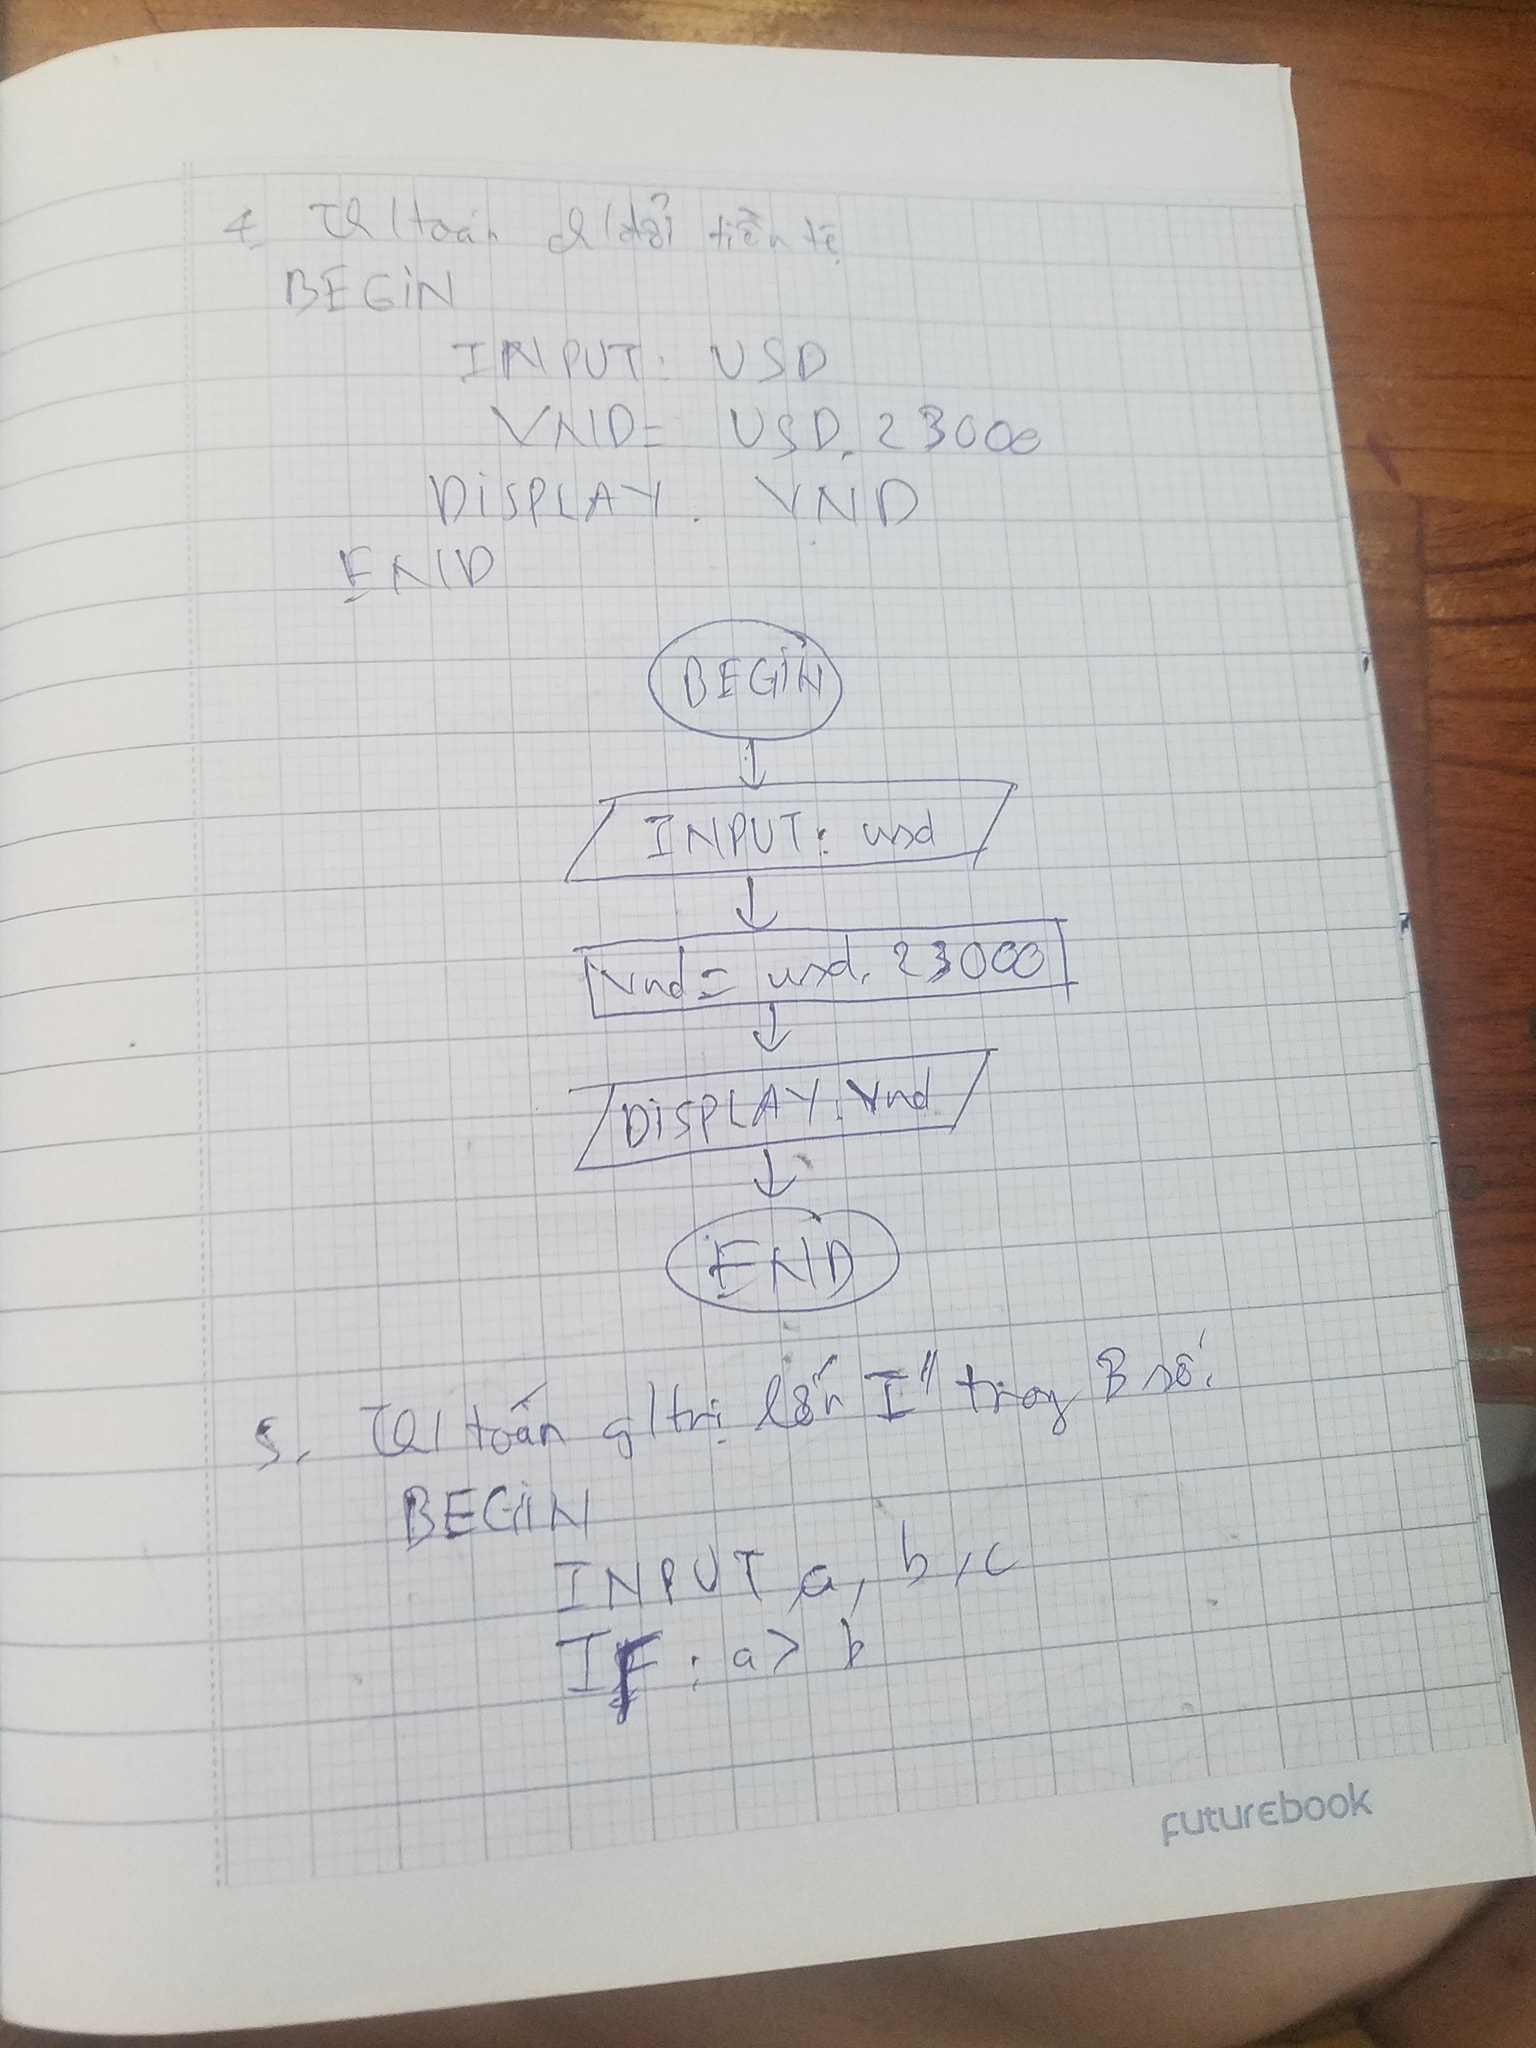 4. Th/toán ch/đổi tiền tệ
BEGIN
INPUT: USD
VND= USD. 23000
DISPLAY. VND
END
BEGIN
INPUT: usd
Vnd= usd. 23000
DISPLAY: Vnd
END
5. Th/toán g/trị lớn I" trong 3 số.
BEGIN
INPUT a, b, c
IF: a> b
futurebook